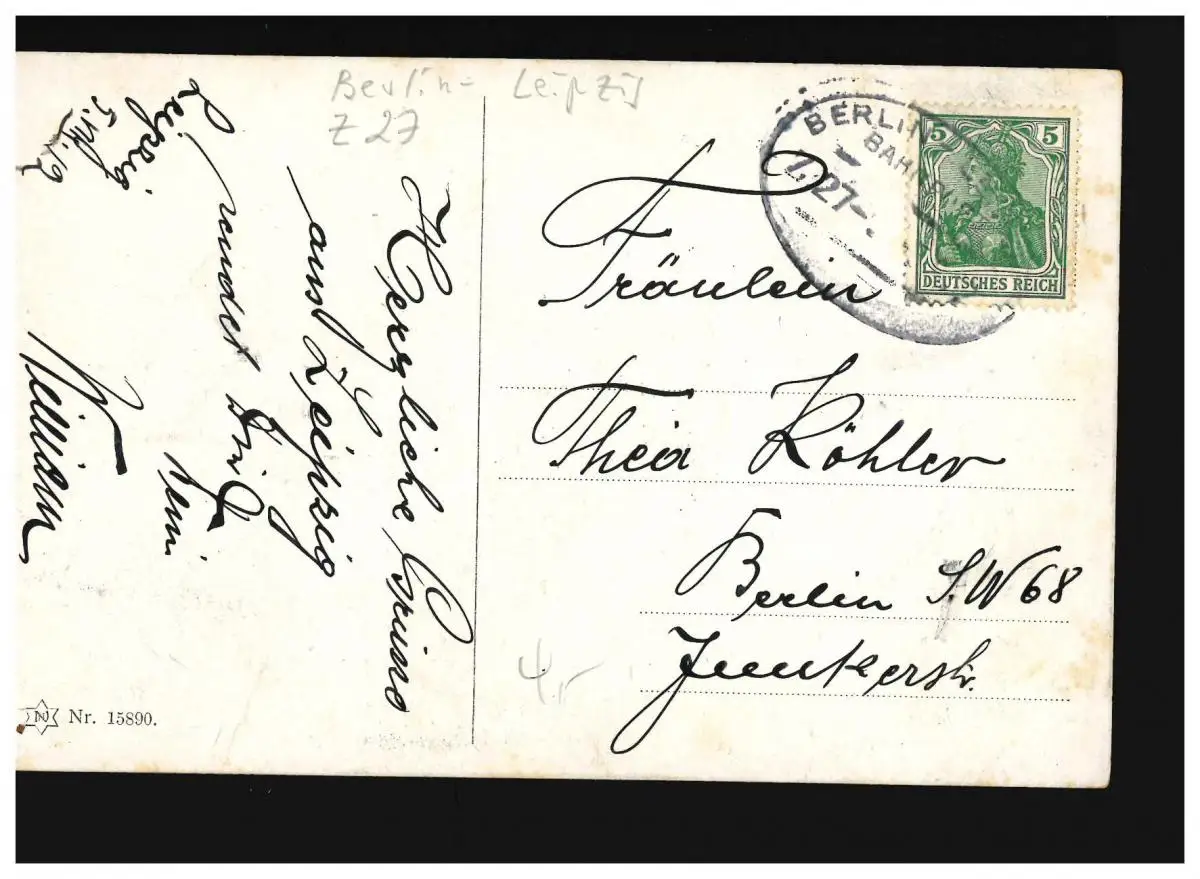 Berlin- Leipzig
Z 27
Leipzig
Herzliche Grüsse
aus Leipzig
sendet Dir
BERLIN
BAH
Z.27
5 5
DEUTSCHES REICH
Fräulein
Thea Köhler
Berlin S.W 68
Junkerstr.
4,-
N Nr. 15890.